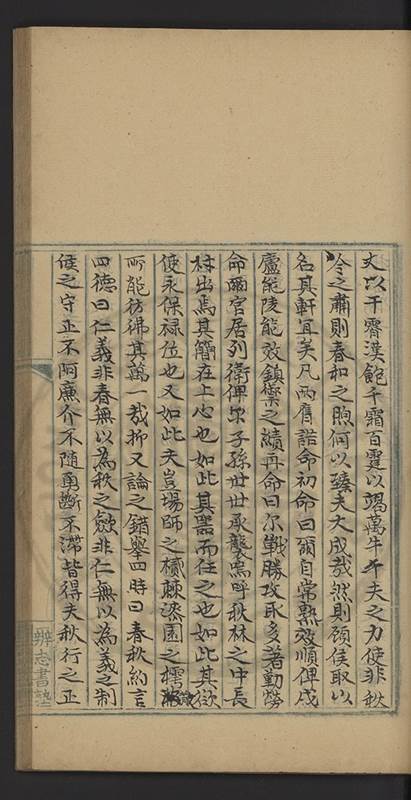 丈以干霄漢飽千霜百霆以竭萬牛千夫之力使非秋
令之肅則春和之煦何以臻夫大成哉然則顧侯取以
名其軒宜矣凡兩膺誥命初命曰爾自常熟效順俾戍
廬能陵能效鎮禦之績再命曰尔戰勝攻取多著勤勞
命爾官居列衛俾尔子孫世世承襲嗚呼秋林之中長
材出焉其簡在上心也如此其器而任之也如此其欲
使永保祿位也又如此夫豈場師之樲棘漆園之樗
所能彷彿其萬一哉抑又論之錯舉四時曰春秋約言
四德曰仁義非春無以為秋之斂非仁無以為義之制
侯之守正不阿廉介不隨勇斷不滯皆得夫秋行之正
辨志書塾